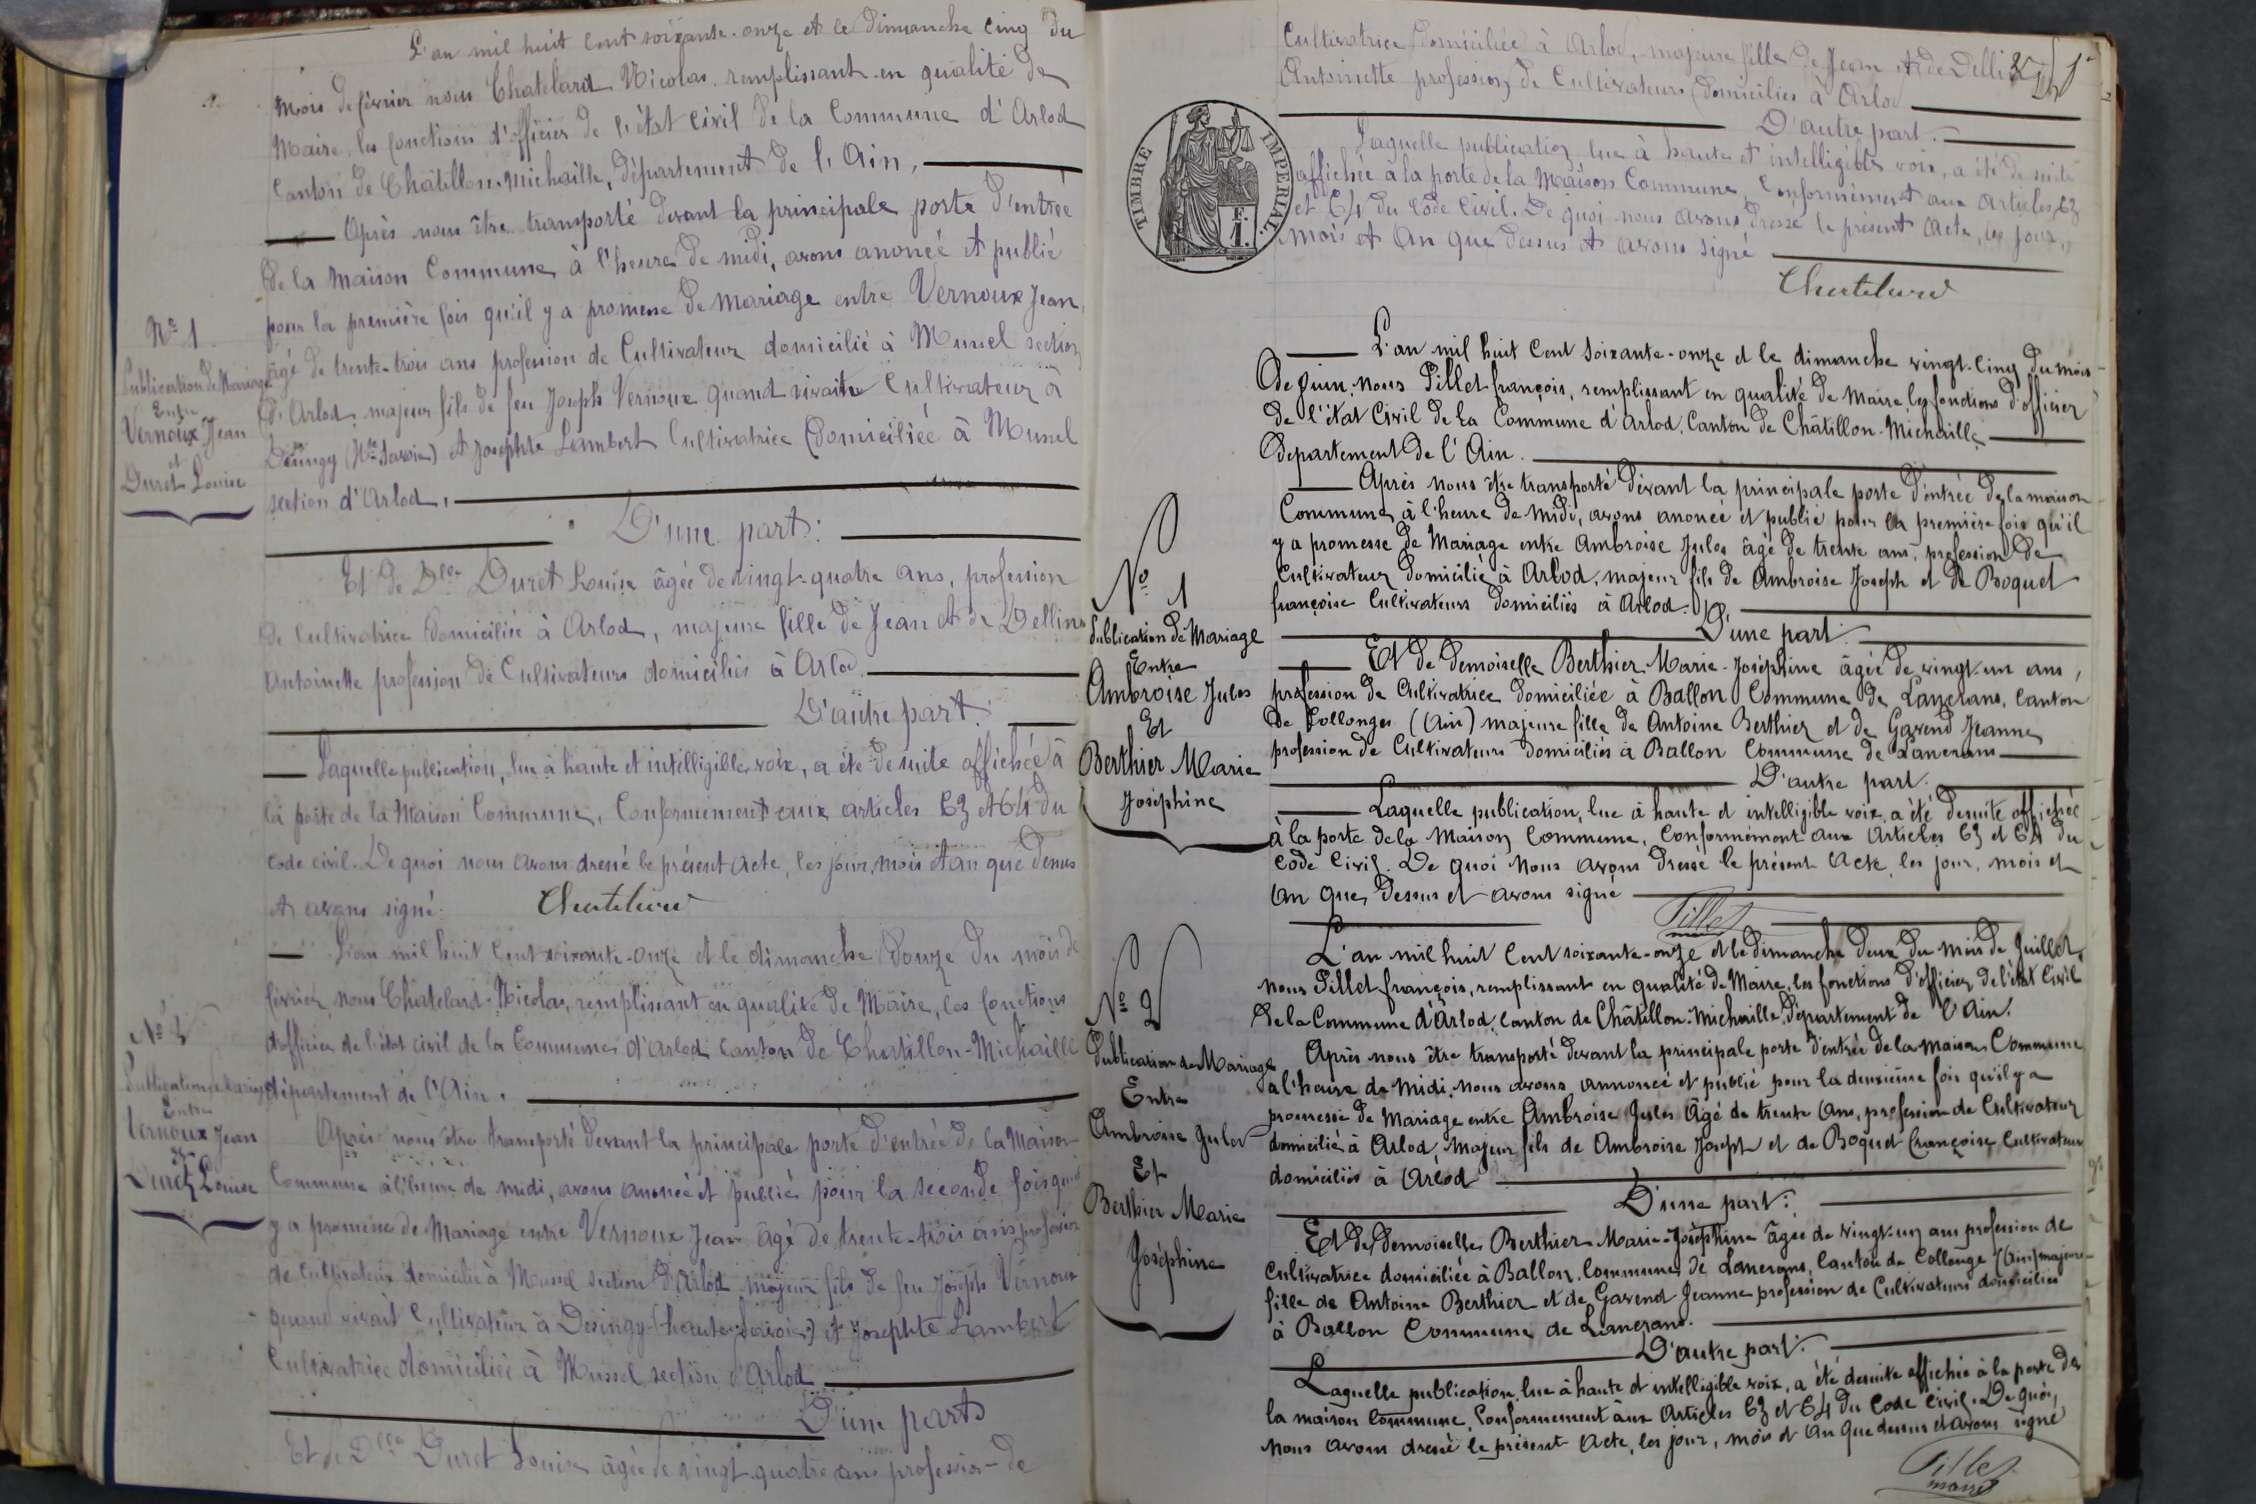 L'an mil huit cent soixante-onze et le dimanche cinq du
mois de février nous Chatelard Nicolas remplissant en qualité de
Maire, les fonctions d'officier de l'état civil de la Commune d'Arlod
Canton de Châtillon-Michaille, département de l'Ain,
Après nous être transporté devant la principale porte d'entrée
de la maison Commune à l'heure de midi, avons anoncé et publié
pour la première fois qu'il y a promesse de mariage entre Vernoux Jean
âgé de trente-trois ans profession de Cultivateur domicilié à Mussel section
d'Arlod, majeur fils de feu Joseph Vernoux quand vivait Cultivateur à
Désingy (Hte Savoie) et Josephte Lambert Cultivatrice domiciliée à Mussel
section d'Arlod,
D'une part:
Et de Dlle Duret Louise âgée de vingt-quatre ans, profession
de Cultivatrice domiciliée à Arlod, majeure fille de Jean et de Dellin
Antoinette profession de Cultivateurs domiciliés à Arlod.
D'autre part.
Laquelle publication, lue à haute et intelligible voix, a été de suite affichée à
la porte de la Maison Commune, Conformément aux articles 63 et 64 du
code civil. De quoi nous avons dressé le présent acte, les jour, mois et an que dessus
et avons signé.
Chatelard
N° 1
Publication de Mariage
Entre
Vernoux Jean
et
Duret Louise
L'an mil huit cent soixante-onze et le dimanche douze du mois de
février, nous Chatelard Nicolas, remplissant en qualité de Maire, les fonctions
d'officier de l'état civil de la Commune d'Arlod canton de Chatillon-Michaille
département de l'Ain.
Après nous être transporté devant la principale porte d'entrée de la Maison
Commune à l'heure de midi, avons anoncé et publié pour la seconde fois qu'il
y a promesse de Mariage entre Vernoux Jean âgé de trente-trois ans profession
de Cultivateur domicilié à Mussel section d'Arlod majeur fils de feu Joseph Vernoux
quand vivait Cultivateur à Desingy (haute Savoie) et Josephte Lambert
Cultivatrice domiciliée à Mussel section d'Arlod
D'une part
Et de Dlle Duret Louise âgée de vingt-quatre ans profession de
N° 2
Publication de Mariage
Entre
Vernoux Jean
Et
Duret Louise
Cultivatrice domiciliée à Arlod, majeure fille de Jean et de Dellin
Antoinette profession de Cultivateurs domiciliés à Arlod
D'autre part.
Laquelle publication lue à haute et intelligible voix, a été de suite
affichée à la porte de la Maison Commune, Conformément aux articles 63
et 64 du Code Civil. De quoi nous avons dressé le présent acte, les jour,
mois et an que dessus et avons signé
Chatelard
TIMBRE IMPERIAL
1 F.
L'an mil huit Cent Soixante-onze et le dimanche vingt-cinq du mois
de Juin, nous Pillet françois, remplissant en qualité de maire, les fonctions d'officier
de l'état Civil de la Commune d'Arlod, Canton de Châtillon-Michaille
département de l'Ain.
Après nous être transporté devant la principale porte d'entrée de la maison
Commune, à l'heure de midi, avons anoncé et publié pour la première fois qu'il
y a promesse de Mariage entre Ambroise Jules âgé de trente ans, profession de
Cultivateur domicilié à Arlod, majeur fils de Ambroise Joseph et de Boquet
françoise Cultivateurs domiciliés à Arlod.
D'une part
Et de demoiselle Berthier Marie-Joséphine âgée de vingt-un ans,
profession de Cultivatrice domiciliée à Ballon Commune de Lancrans, Canton
de Collonges (Ain) majeure fille de Antoine Berthier et de Gavend Jeanne
profession de Cultivateurs domiciliés à Ballon Commune de Lancrans
D'autre part.
Laquelle publication, lue à haute et intelligible voix, a été de suite affichée
à la porte de la Maison Commune, Conformément aux Articles 63 et 64 du
Code Civil. De quoi Nous avons dressé le présent Acte, les jour, mois et
an que dessus et avons signé
Pillet
maire
N° 1
Publication de Mariage
Entre
Ambroise Jules
Et
Berthier Marie
Joséphine
L'an mil huit Cent soixante-onze et le dimanche deux du mois de Juillet,
nous Pillet françois, remplissant en qualité de Maire, les fonctions d'officier de l'état Civil
de la Commune d'Arlod, canton de Châtillon-Michaille, département de l'Ain.
Après nous être transporté devant la principale porte d'entrée de la maison Commune
à l'heure de midi, nous avons annoncé et publié pour la deuxième fois qu'il y a
promesse de Mariage entre Ambroise Jules Âgé de trente ans, profession de Cultivateur
domicilié à Arlod, Majeur fils de Ambroise Joseph et de Boquet françoise Cultivateurs
domiciliés à Arlod
D'une part:
Et de demoiselle Berthier Marie-Joséphine âgée de vingt-un ans profession de
Cultivatrice domiciliée à Ballon, Commune de Lancrans, Canton de Collonge (Ain) majeure
fille de Antoine Berthier et de Gavend Jeanne profession de Cultivateurs domiciliés
à Ballon Commune de Lancrans.
D'autre part.
Laquelle publication, lue à haute et intelligible voix, a été de suite affichée à la porte de
la maison Commune, Conformément aux Articles 63 et 64 du Code Civil. De quoi,
Nous avons dressé le présent acte, les jour, mois et an que dessus et avons signé
Pillet
maire
N° 2
Publication de Mariage
Entre
Ambroise Jules
Et
Berthier Marie
Joséphine